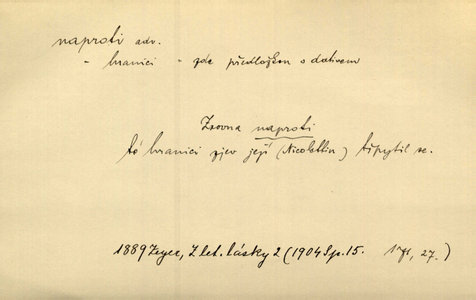 naproti adv.
- hranici - zde předložkou s dativem
Zrovna naproti
té hranici zjev její (Nicolettin) třpytil se.
1889 Zeyer, Z let. lásky 2 (1904 Sp. 15. 171, 27.)